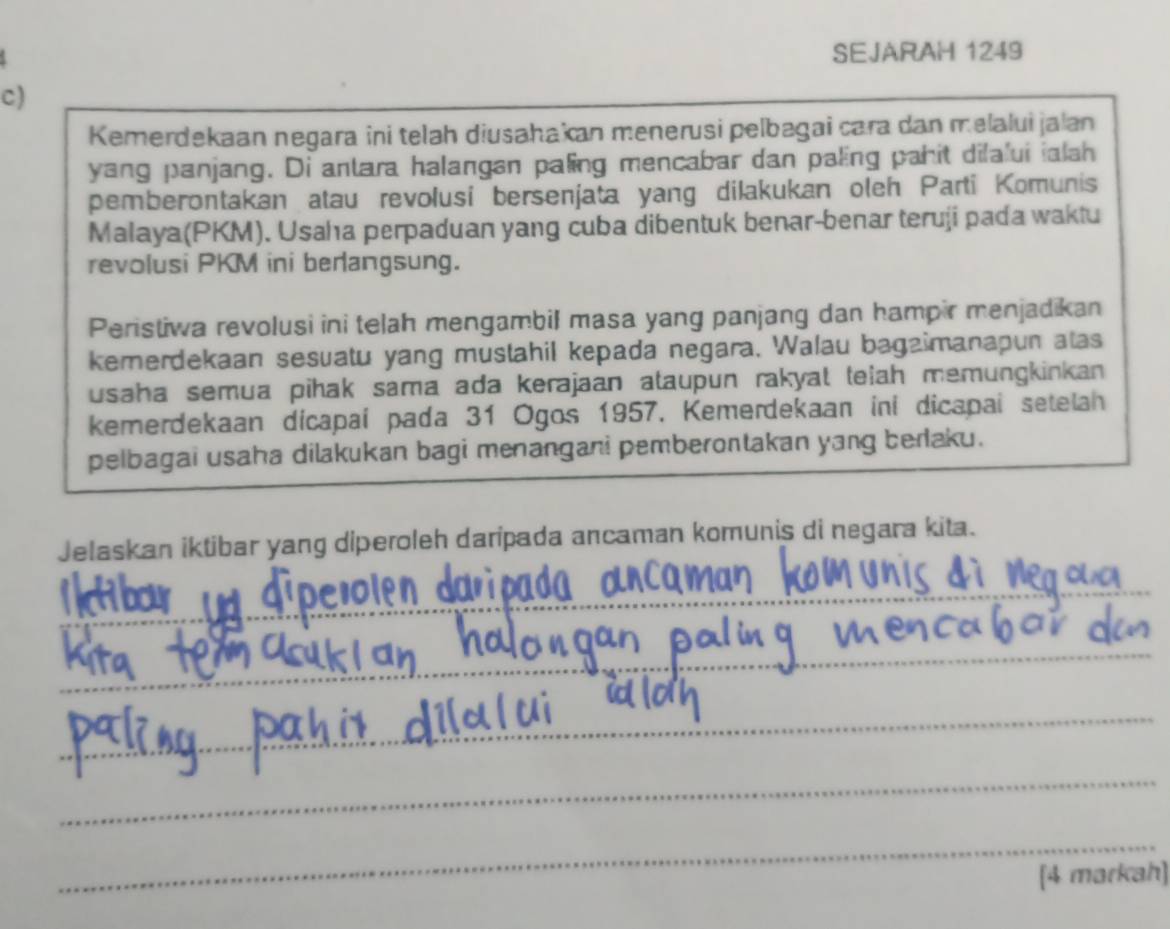 SEJARAH 1249
c)
Kemerdekaan negara ini telah diusahakan menerusi pelbagai cara dan melalui jalan
yang panjang. Di antara halangan paling mencabar dan paling pahit dilalui ialah
pemberontakan atau revolusi bersenjata yang dilakukan oleh Parti Komunis
Malaya(PKM). Usaha perpaduan yang cuba dibentuk benar-benar teruji pada waktu
revolusi PKM ini berlangsung.
Peristiwa revolusi ini telah mengambil masa yang panjang dan hampir menjadikan
kemerdekaan sesuatu yang mustahil kepada negara. Walau bagaimanapun atas
usaha semua pihak sama ada kerajaan ataupun rakyat telah memungkinkan
kemerdekaan dicapai pada 31 Ogos 1957. Kemerdekaan ini dicapai setelah
pelbagai usaha dilakukan bagi menangani pemberontakan yang berlaku.
Jelaskan iktibar yang diperoleh daripada ancaman komunis di negara kita.
Iktibar yg diperolen daripada ancaman komunis di negara
kita termasuklan halangan paling mencabar dan
paling pahit dilalui ialah
[4 markah]